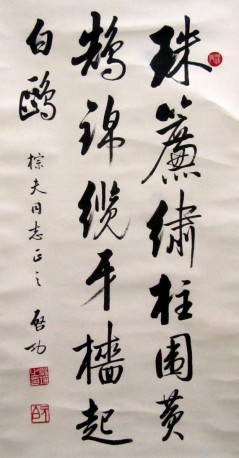 珠簾繡柱圍黃
鵠錦纜牙檣起
白鷗
棕夫同志正之
啓功